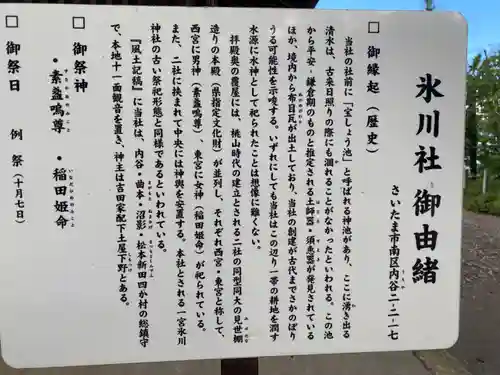 氷川社御由緒
さいたま市南区内谷二-二-一七
□ 御縁起（歴史）
当社の社前に「宝しょう池」と呼ばれる神池があり、ここに湧き出る
清水は、古来日照りの際にも涸れることがなかったといわれる。この池
から平安・鎌倉期のものと推定される土師器・須恵器が発見されている
ほか、境内から布目瓦が出土しており、当社の創建が古代までさかのぼり
うる可能性を示唆する。いずれにしても当社はこの辺り一帯の耕地を潤す
水源に水神として祀られたことは想像に難くない。
拝殿奥の覆屋には、桃山時代の建立とされる二社の同型同大の見世棚
造りの本殿（県指定文化財）が並列し、それぞれ西宮・東宮と称して、
西宮に男神（素盞嗚尊）、東宮に女神（稲田姫命）が祀られている。
また、二社に挟まれて中央には神輿を安置する。本社とされる一宮氷川
神社の古い祭祀形態と同様であるといわれている。
『風土記稿』に当社は、内谷・曲本・沼影・松本新田四か村の総鎮守
で、本地十一面観音を置き、神主は吉田家配下土屋下野とある。
□ 御祭神
・素盞嗚尊 ・稲田姫命
□ 御祭日 例祭（十月七日）